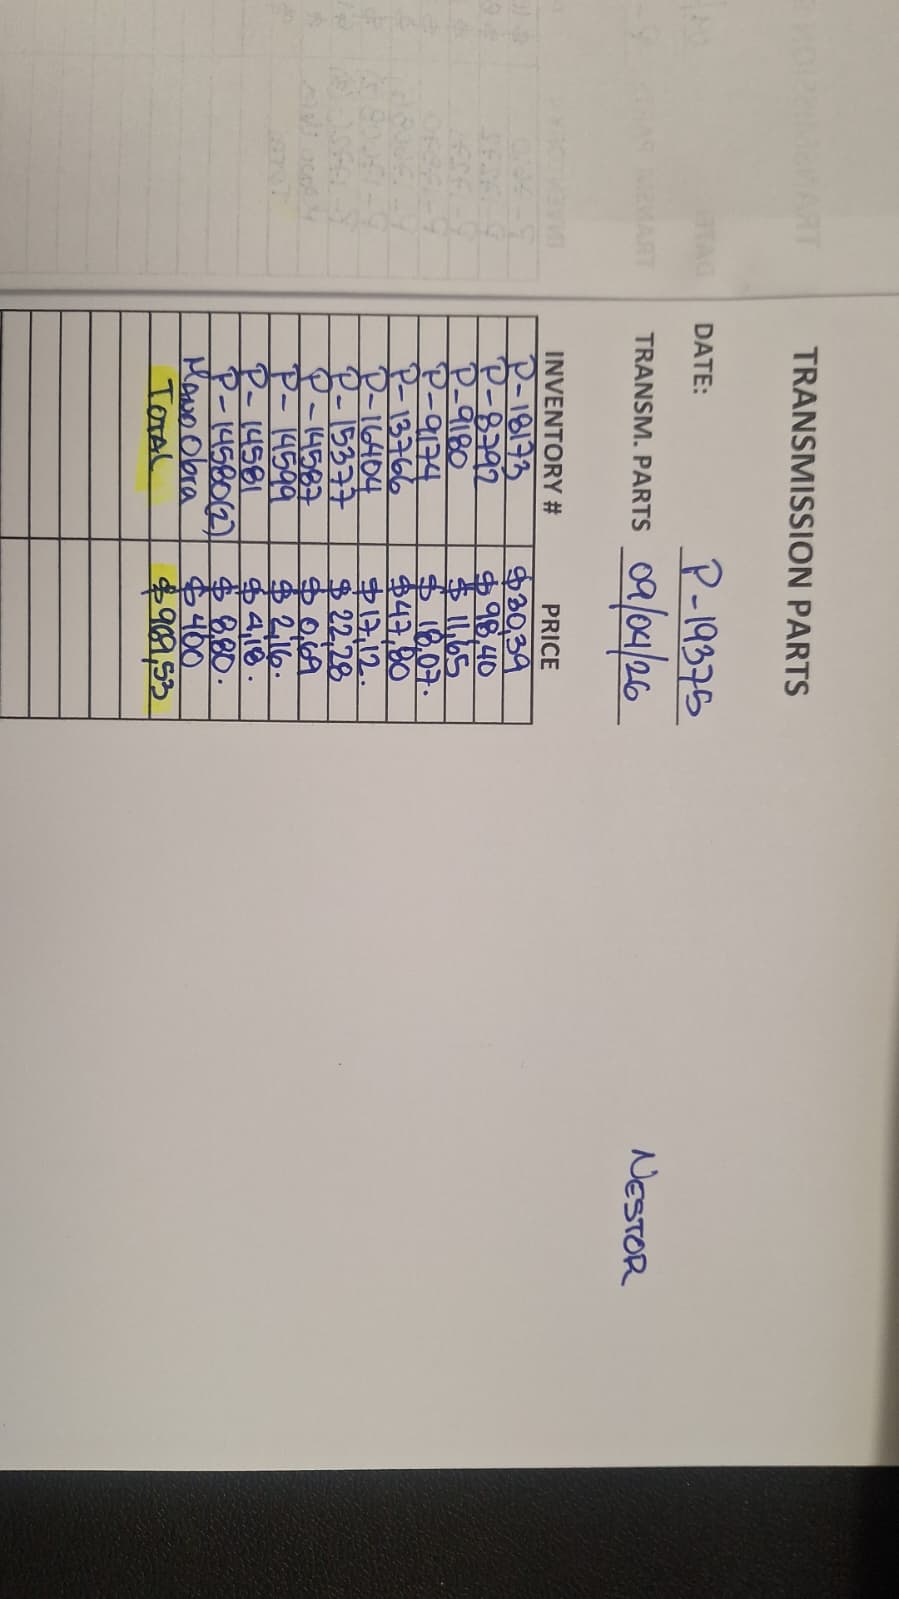 TRANSMISSION PARTS
DATE: P-19375
TRANSM. PARTS 09/04/26
NESTOR
INVENTORY # PRICE
P-18173 $30,39
P-8792 $98,40
P-9180 $11,65
P-9174 $18,07.
P-13766 $47,80
P-16404 $17,12.
P-15377 $22,28
P-14587 $0,69
P-14599 $2,16.
P-14581 $4,18.
P-14580(2) $8,80.
Mano Obra $400
TOTAL